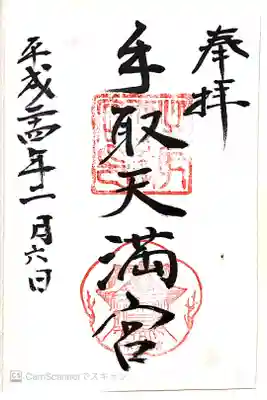 奉拝
手取天満宮
平成二四年二月六日
CamScannerでスキャン